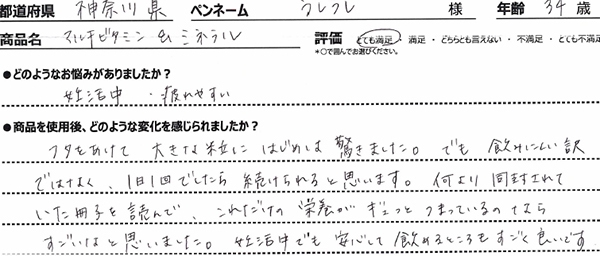 都道府県 神奈川県 ペンネーム うしうし 様 年齢 34 歳
商品名 マルチビタミン & ミネラル 評価 とても満足 ・ 満足 ・ どちらとも言えない ・ 不満足 ・ とても不満足
*○で囲んでお選びください。
●どのようなお悩みがありましたか?
妊活中 ・疲れやすい
●商品を使用後、どのような変化を感じられましたか?
フタをあけて 大きな粒に はじめは 驚きました。でも 飲みにくい訳
ではなく、1日1回でしたら 続けられると思います。何より 同封されて
いた冊子を読んで、これだけの 栄養が ギュっと つまっているのなら
すごいなと思いました。妊活中でも 安心して 飲めるところも すごく良いです